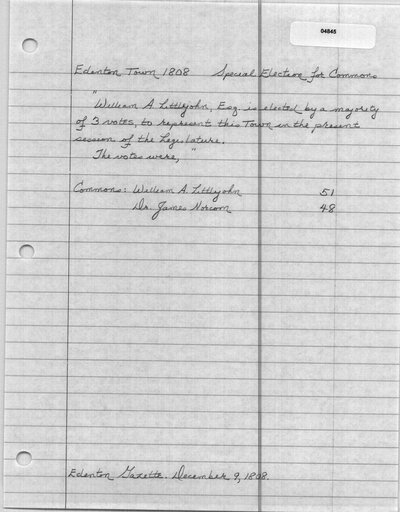 04845
Edenton Town 1808 Special Election for Commons
"William A. Littlejohn, Esq. is elected by a majority
of 3 votes, to represent this Town in the present
session of the Legislature.
The votes were, "
Commons: William A. Littlejohn 51
Dr. James Norcom 48
Edenton Gazette. December 9, 1808.